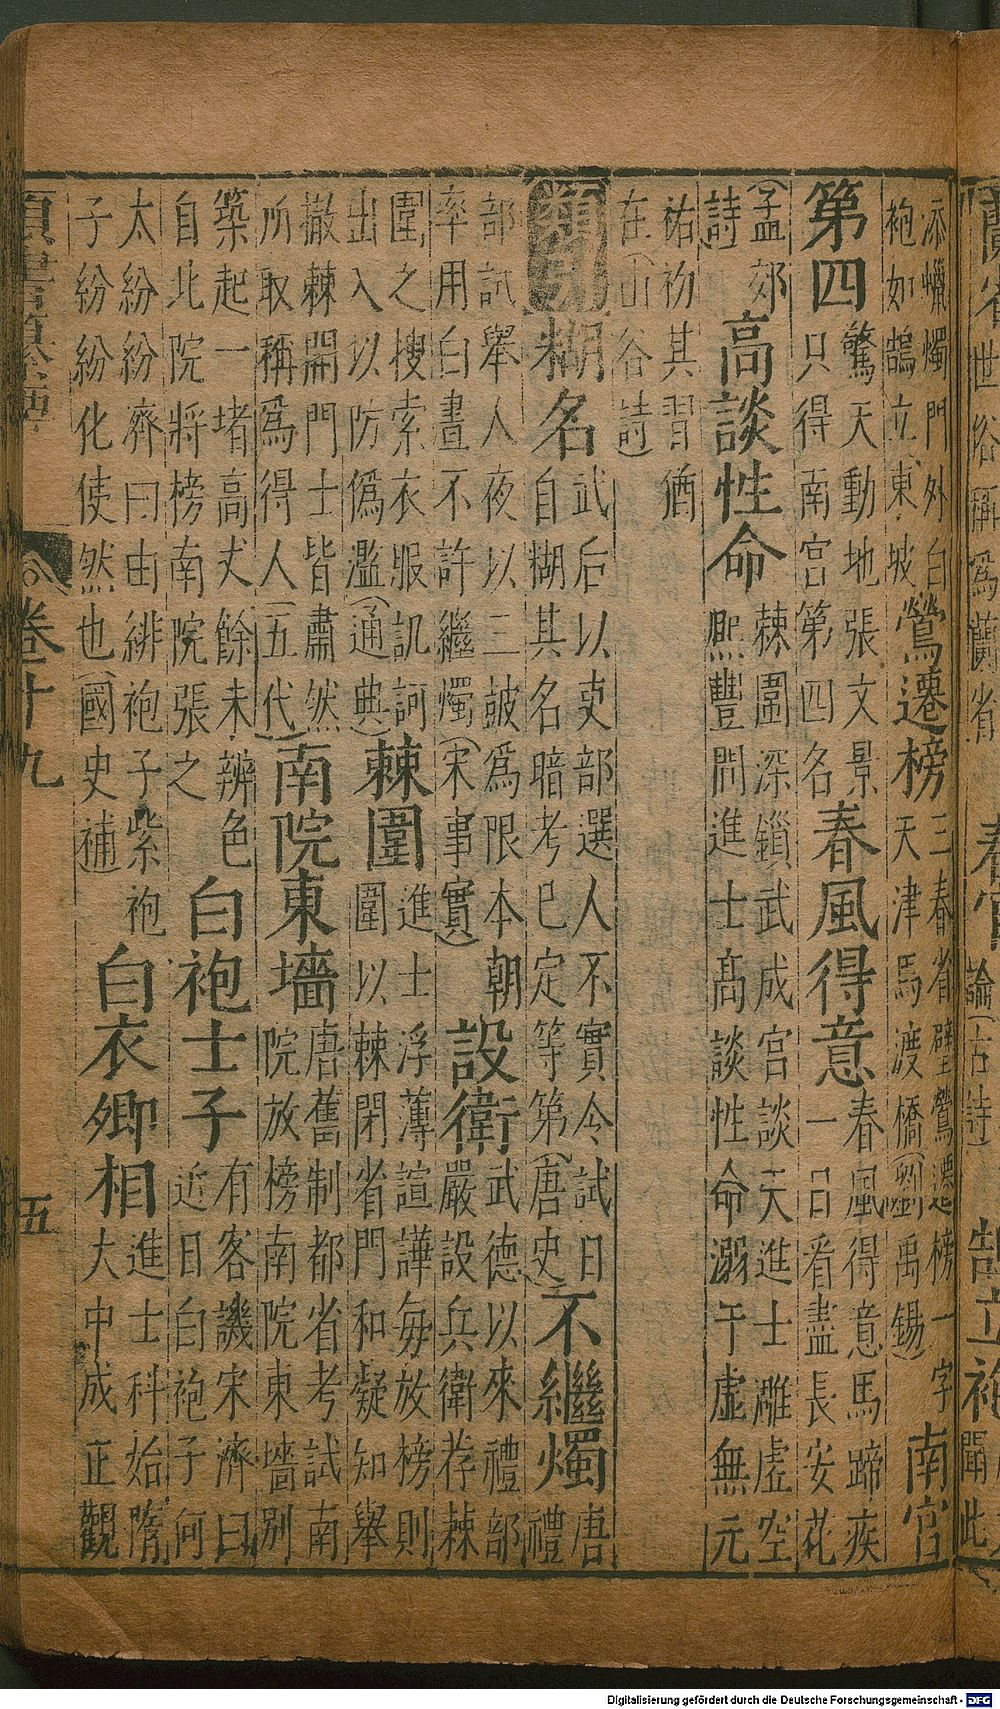 添蠟燭門外白
袍如鵠立東坡
鶯遷榜
三春省壁鶯遷榜一字
天津馬渡橋(劉禹錫)
南宫
第四
驚天動地張文景
只得南宮第四名
春風得意
春風得意馬蹄疾
一日看盡長安花
(孟郊
詩
高談性命
棘圍深鎖武成宮談天進士雕虛空
熈豐間進士高談性命溺于虚無元
祐初其習猶
在(山谷詩)
糊名
武后以吏部選人不實令試日
自糊其名暗考巳定等第(唐史)
不繼燭
唐
禮
部試舉人夜以三皷為限本朝
率用白晝不許繼燭(宋事實)
設衛
武德以來禮部
嚴設兵衛荐棘
圍之搜索衣服訊訶
出入以防偽濫(通典)
棘圍
進士浮薄諠譁每放榜則
圍以棘閉省門和凝知舉
撤棘開門士皆肅然
所取稱為得人(五代)
南院東墻
唐舊制都省考試南
院放榜南院東墻别
築起一堵高丈餘未辨色
自北院將榜南院張之
白袍士子
有客譏宋濟曰
近日白袍子何
太紛紛濟曰由緋袍子紫袍
子紛紛化使然也(國史補
白衣卿相
進士科始隋
大中成正觀
卷十九
五
Digitalisierung gefördert durch die Deutsche Forschungsgemeinschaft - DFG